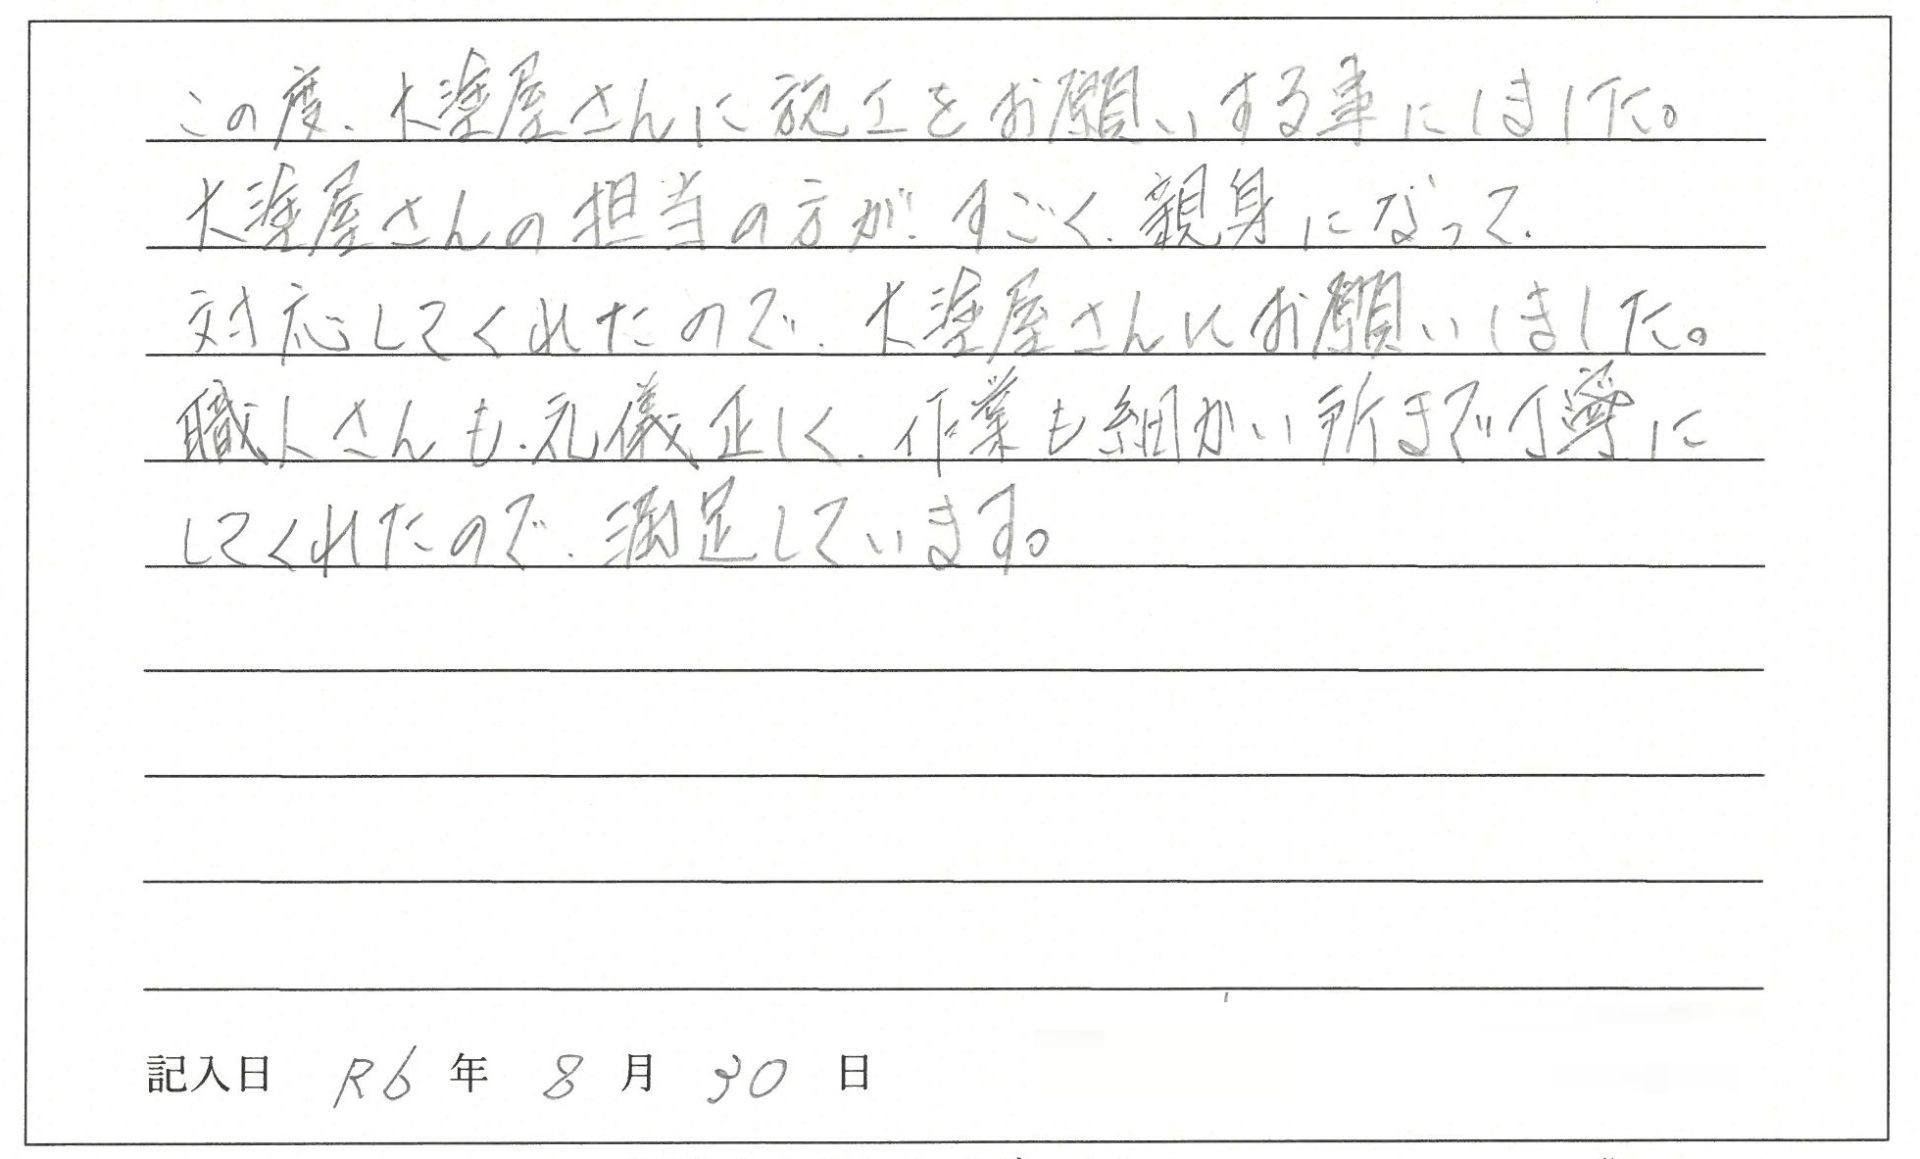 この度、大塗屋さんに施工をお願いする事にしました。
大塗屋さんの担当の方が、すごく、親身になって、
対応してくれたので、大塗屋さんにお願いしました。
職人さんも、礼儀正しく、作業も細かい所まで丁寧に
してくれたので、満足しています。
記入日 R6 年 8 月 30 日